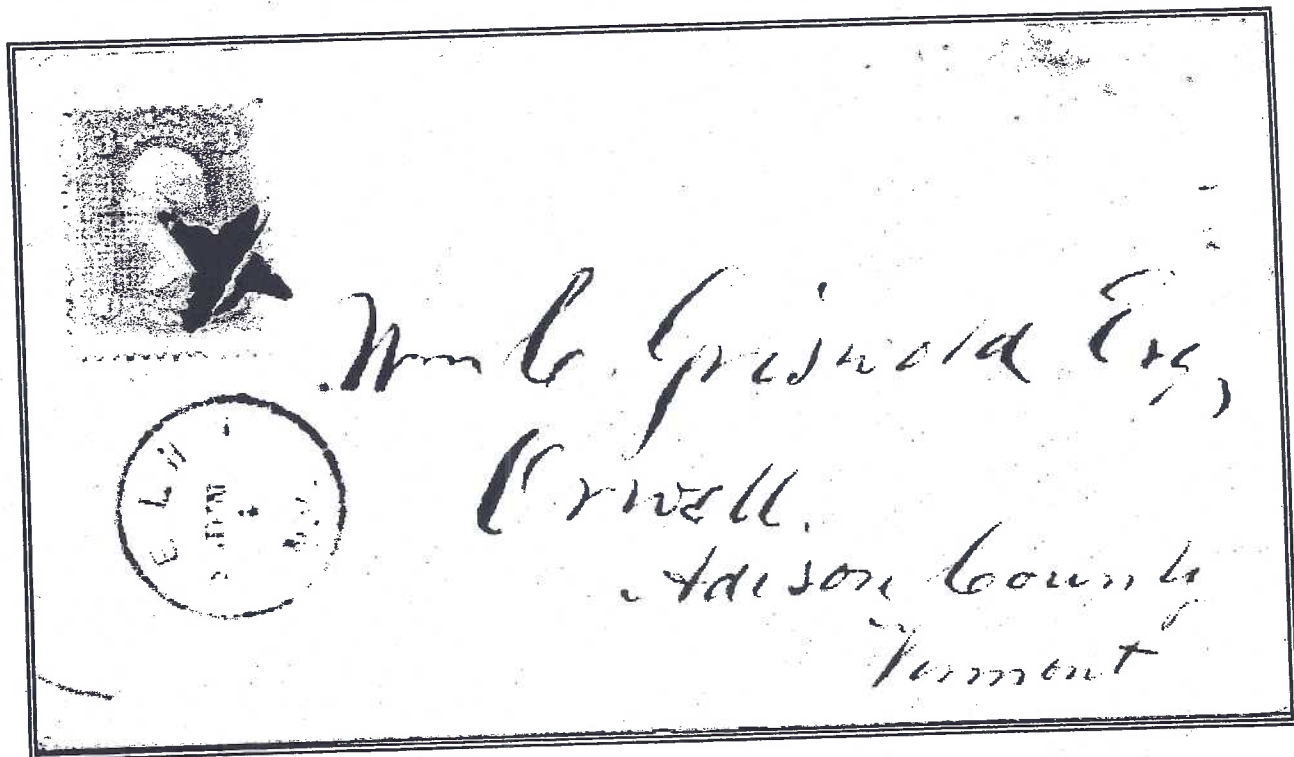 Wm C. Griswold Esq,
Orwell.
Adison County
Vermont
ELM